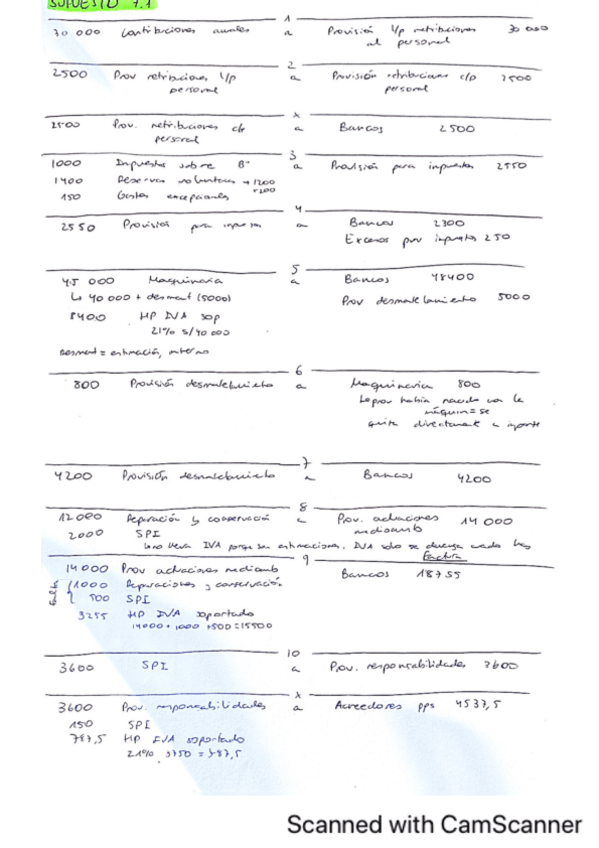 SUPUESTO 7.1
1
30 000 Contribuciones anuales a Provisión l/p retribuciones 30 000
al personal
2
2500 Prov retribuciones l/p a Provisión retribuciones c/p 2500
personal personal
x
2500 Prov. retribuciones c/p a Bancos 2500
personal
3
1000 Impuestos sobre Bº a Provisión para impuestos 2550
1400 Reservas voluntarias → 1200
+200
150 Gastos excepcionales
4
2550 Provisión para impuestos a Bancos 2300
Excesos prov impuestos 250
5
45 000 Maquinaria a Bancos 48400
↳ 40 000 + desmant (5000) Prov desmantelamiento 5000
8400 HP IVA sop
21% s/40 000
desmant = estimación, interno
6
800 Provisión desmantelamiento a Maquinaria 800
La prov había nacido con la
máquina = se
quita directamente importe
7
4200 Provisión desmantelamiento a Bancos 4200
8
12000 Reparación y conservación a Prov. actuaciones 14 000
2000 SPI medioamb
no lleva IVA porque son estimaciones. IVA solo se devenga cuando hay
factura
9
14000 Prov actuaciones medioamb Bancos 18755
1000 Reparaciones y conservación
500 SPI
3255 HP IVA soportado
14000 + 1000 + 500 = 15500
10
3600 SPI a Prov. responsabilidades 3600
x
3600 Prov. responsabilidades a Acreedores pps 4537,5
150 SPI
787,5 HP IVA soportado
21% 3750 = 787,5
Scanned with CamScanner